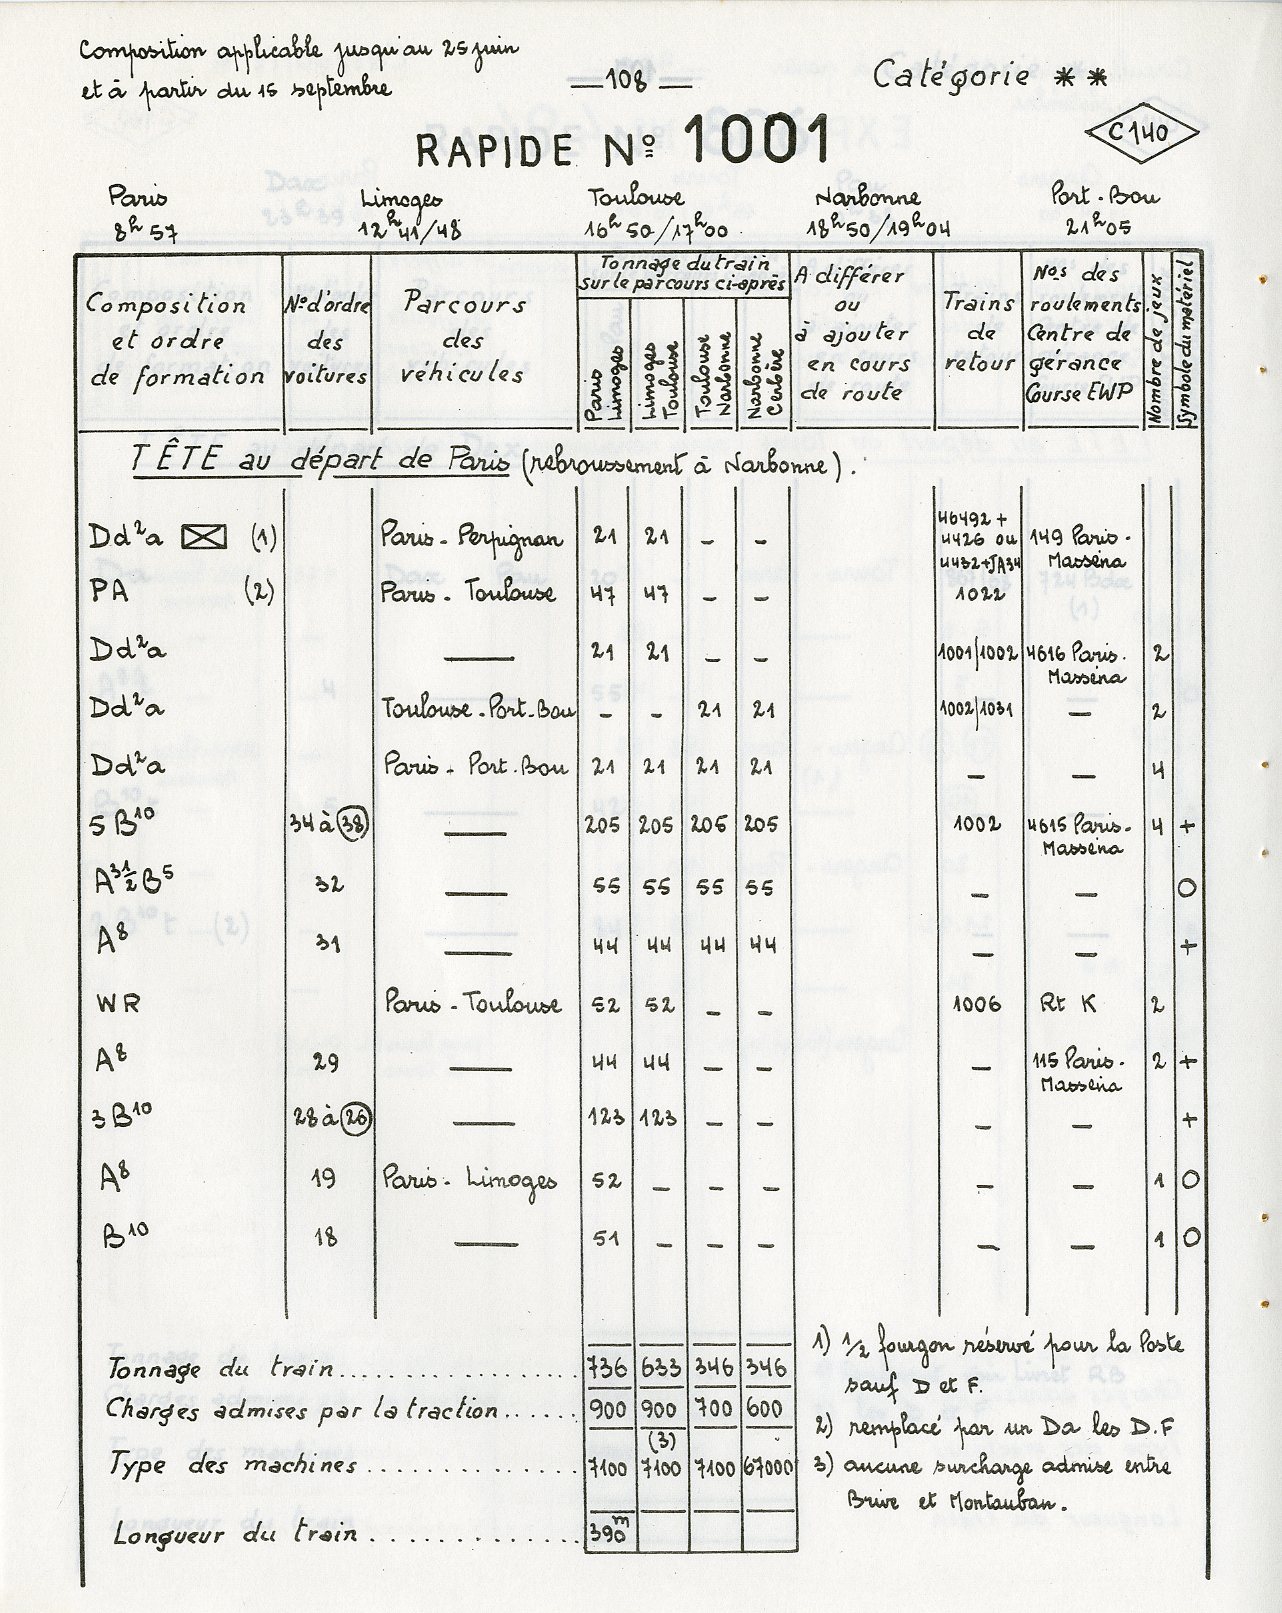 Composition applicable jusqu'au 25 juin
et à partir du 15 septembre
— 108 —
Catégorie * *
RAPIDE Nº 1001
C 140
Paris Limoges Toulouse Narbonne Port-Bou
8h57 12h41/48 16h50/17h00 18h50/19h04 21h05
Composition et ordre de formation
Nº d'ordre des voitures
Parcours des véhicules
Tonnage du train sur le parcours ci-après
Paris Limoges
Limoges Toulouse
Toulouse Narbonne
Narbonne Cerbère
A différer ou à ajouter en cours de route
Trains de retour
Nos des roulements. Centre de gérance Course EWP
Nombre de jeux
Symbole du matériel
TÊTE au départ de Paris (rebroussement à Narbonne).
Dd²a (1) Paris-Perpignan 21 21 — — 46492 + 4426 ou 4432+JA34 149 Paris-Masséna
PA (2) Paris-Toulouse 47 47 — — 1022
Dd²a — 21 21 — — 1001/1002 4616 Paris-Masséna 2
Dd²a Toulouse-Port-Bou — — 21 21 1002/1031 — 2
Dd²a Paris-Port-Bou 21 21 21 21 — — 4
5 B¹⁰ 34 à 38 — 205 205 205 205 1002 4615 Paris-Masséna 4 +
A³½B⁵ 32 — 55 55 55 55 — — O
A⁸ 31 — 44 44 44 44 — — +
WR Paris-Toulouse 52 52 — — 1006 Rt K 2
A⁸ 29 — 44 44 — — — 115 Paris-Masséna 2 +
3 B¹⁰ 28 à 26 — 123 123 — — — — +
A⁸ 19 Paris-Limoges 52 — — — — — 1 O
B¹⁰ 18 — 51 — — — — — 1 O
Tonnage du train.................. 736 633 346 346
Charges admises par la traction...... 900 900 700 600
(3)
Type des machines............... 7100 7100 7100 67000
Longueur du train.............. 390m
1) 1/2 fourgon réservé pour la Poste
sauf D et F.
2) remplacé par un Da les D.F
3) aucune surcharge admise entre
Brive et Montauban.